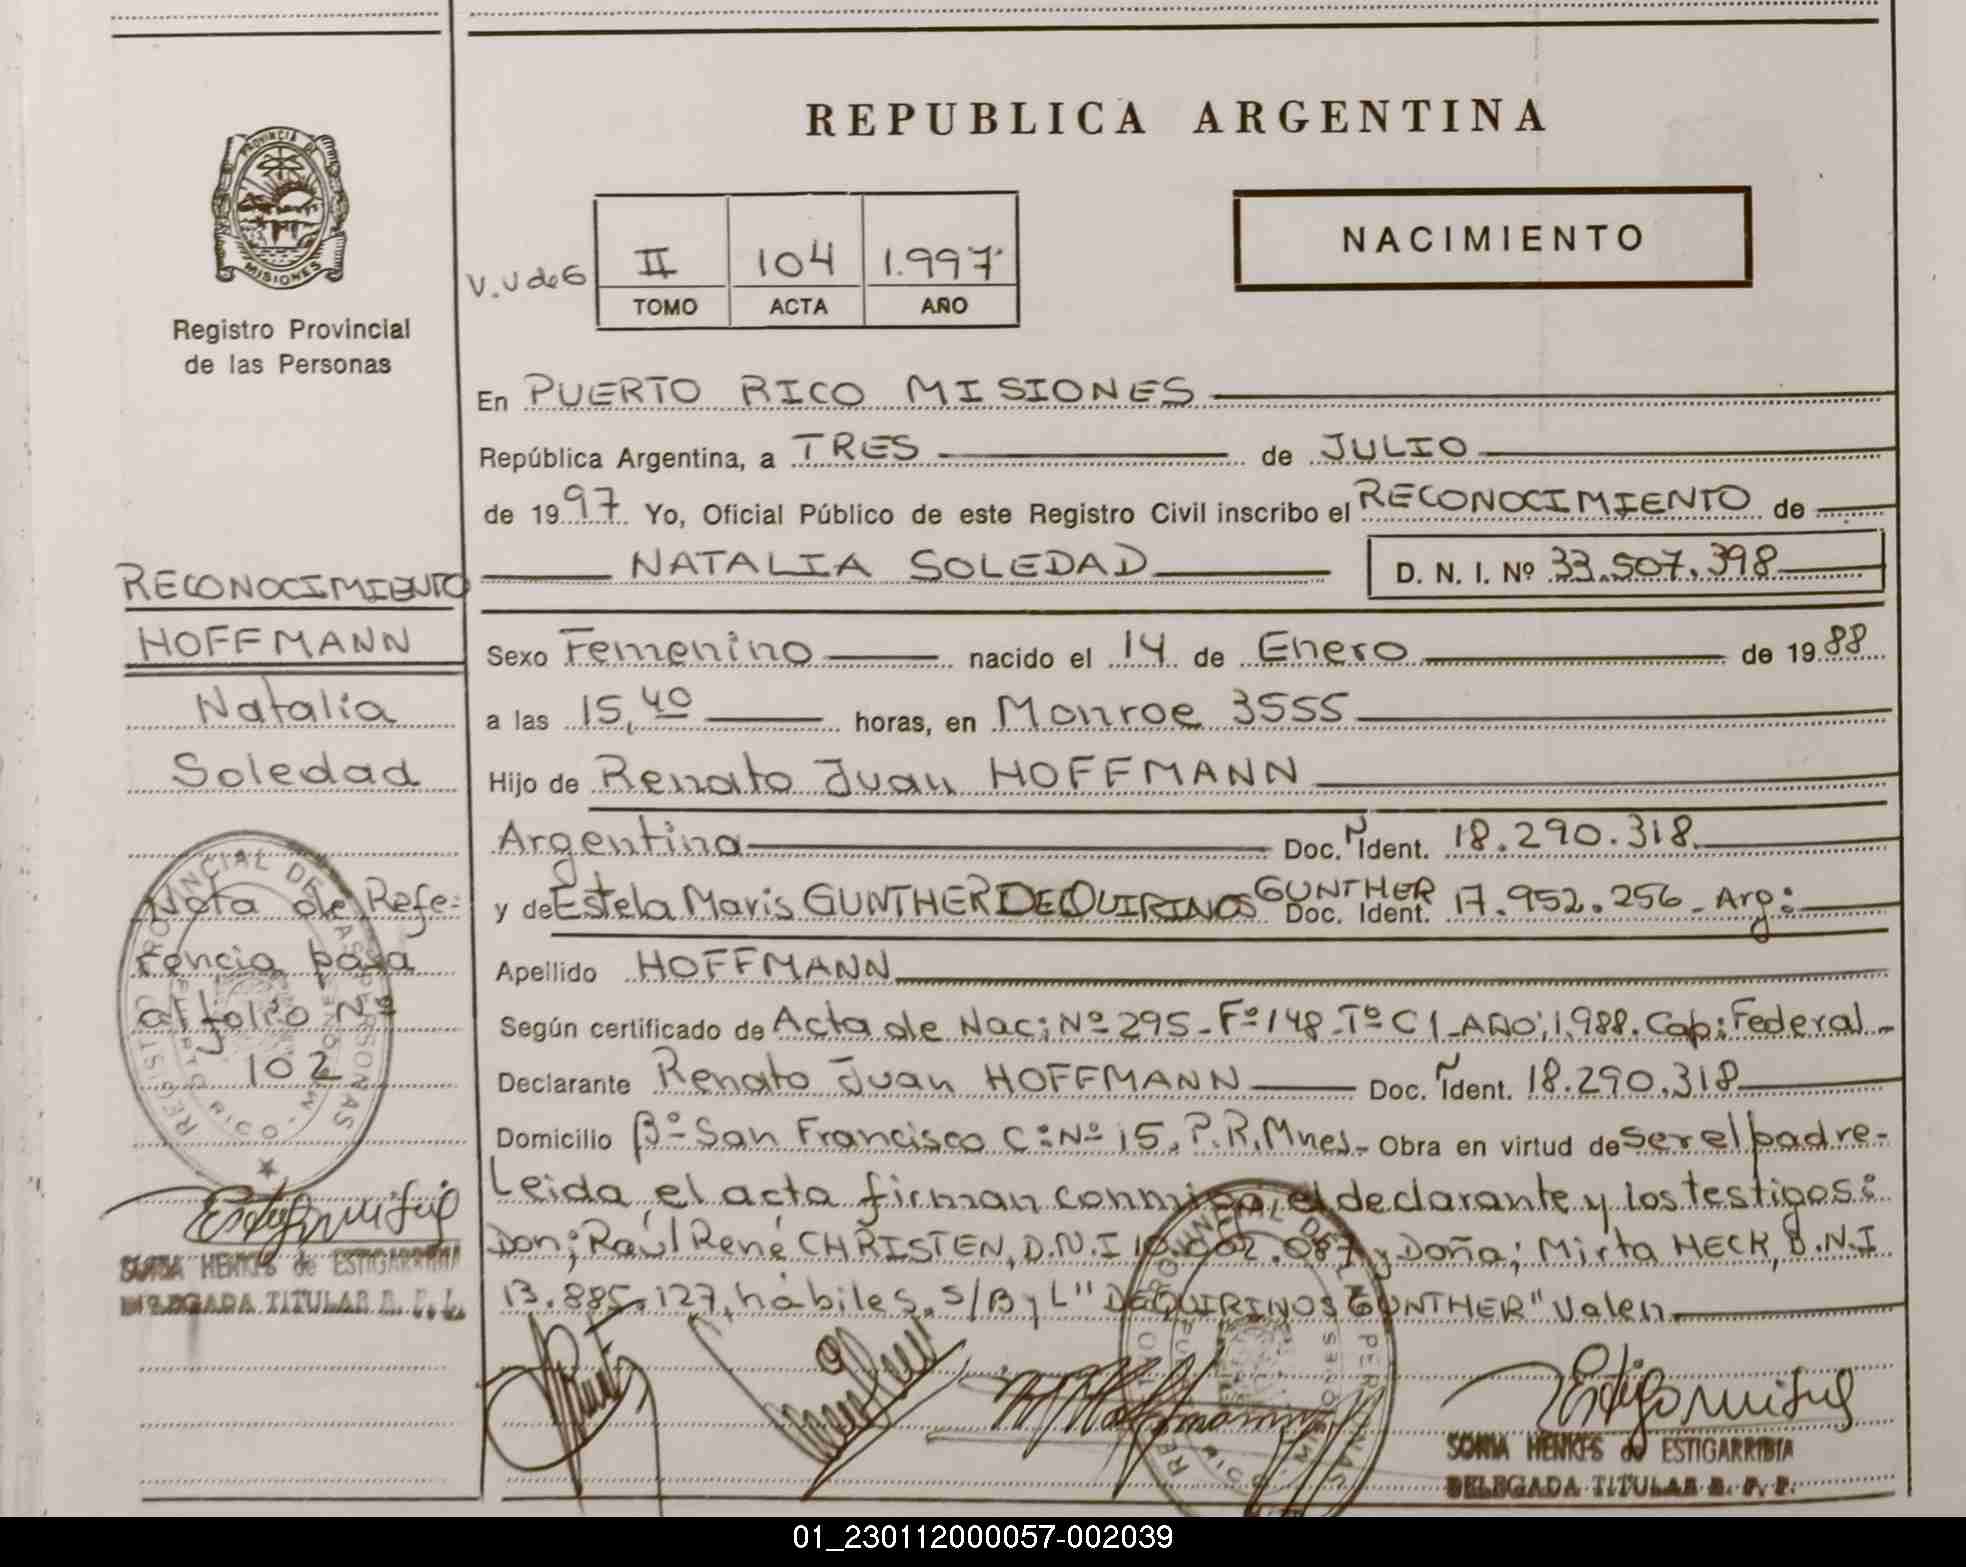 REPUBLICA ARGENTINA
PROVINCIA DE
MISIONES
Registro Provincial
de las Personas
NACIMIENTO
V.U de G
II 104 1.997
TOMO ACTA AÑO
En PUERTO RICO MISIONES
República Argentina, a TRES de JULIO
de 1997 Yo, Oficial Público de este Registro Civil inscribo el RECONOCIMIENTO de
NATALIA SOLEDAD D. N. I. Nº 33.507.398
Sexo Femenino nacido el 14 de Enero de 1988
a las 15,40 horas, en Monroe 3555
Hijo de Renato Juan HOFFMANN
Argentina Doc. Ident. 18.290.318
y de Estela Maris GUNTHER DEQUIRINOS GUNTHER Doc. Ident. 17.952.256 - Arg:
Apellido HOFFMANN
Según certificado de Acta de Nac; Nº 295 - Fº 148 - Tº C1 - AÑO; 1.988. Cap; Federal -
Declarante Renato Juan HOFFMANN Doc. Ident. 18.290.318
Domicilio Bº San Francisco C: Nº 15, P.R. Mnes - Obra en virtud de ser el padre -
Leida el acta firman conmigo, el declarante y los testigos:
Don; Raúl René CHRISTEN, D.N.I 10.002.087 y Doña; Mirta HECK, D.N.I
13.885.127, hábiles. S/B y L "DEQUIRINOS GUNTHER" Valen
RECONOCIMIENTO
HOFFMANN
Natalia
Soledad
Nota de Refe-
rencia pasa
al folio Nº
102
REGISTRO PROVINCIAL DE LAS PERSONAS
SONIA HENKES de ESTIGARRIBIA
DELEGADA TITULAR R. P. P.
SONIA HENKES de ESTIGARRIBIA
DELEGADA TITULAR R. P. P.
01_230112000057-002039